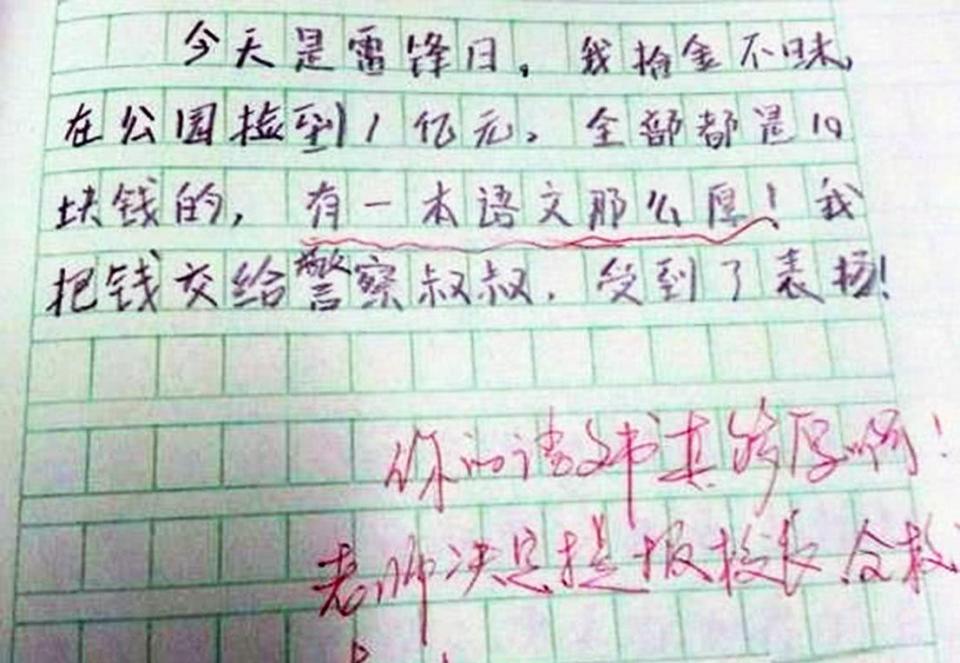 今天是雷锋日，我拾金不昧，
在公园捡到1亿元。全部都是10
块钱的，有一本语文那么厚！我
把钱交给警察叔叔，受到了表扬！
你的语文书真够厚啊！
老师决定提报校长全校